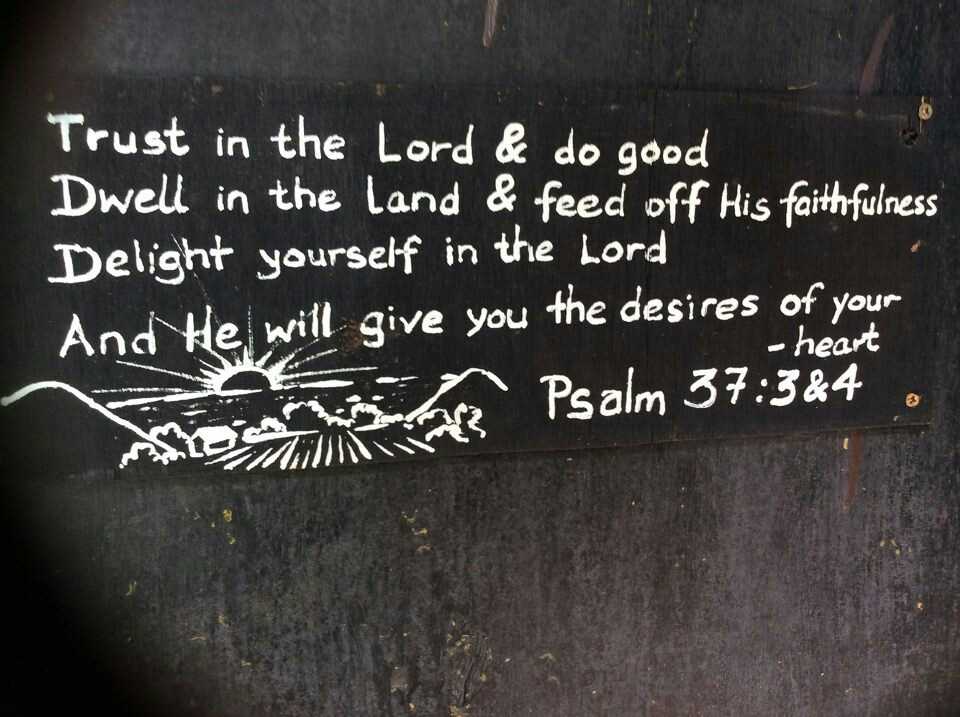 Trust in the Lord & do good
Dwell in the Land & feed off His faithfulness
Delight yourself in the Lord
And He will give you the desires of your
- heart
Psalm 37:3&4